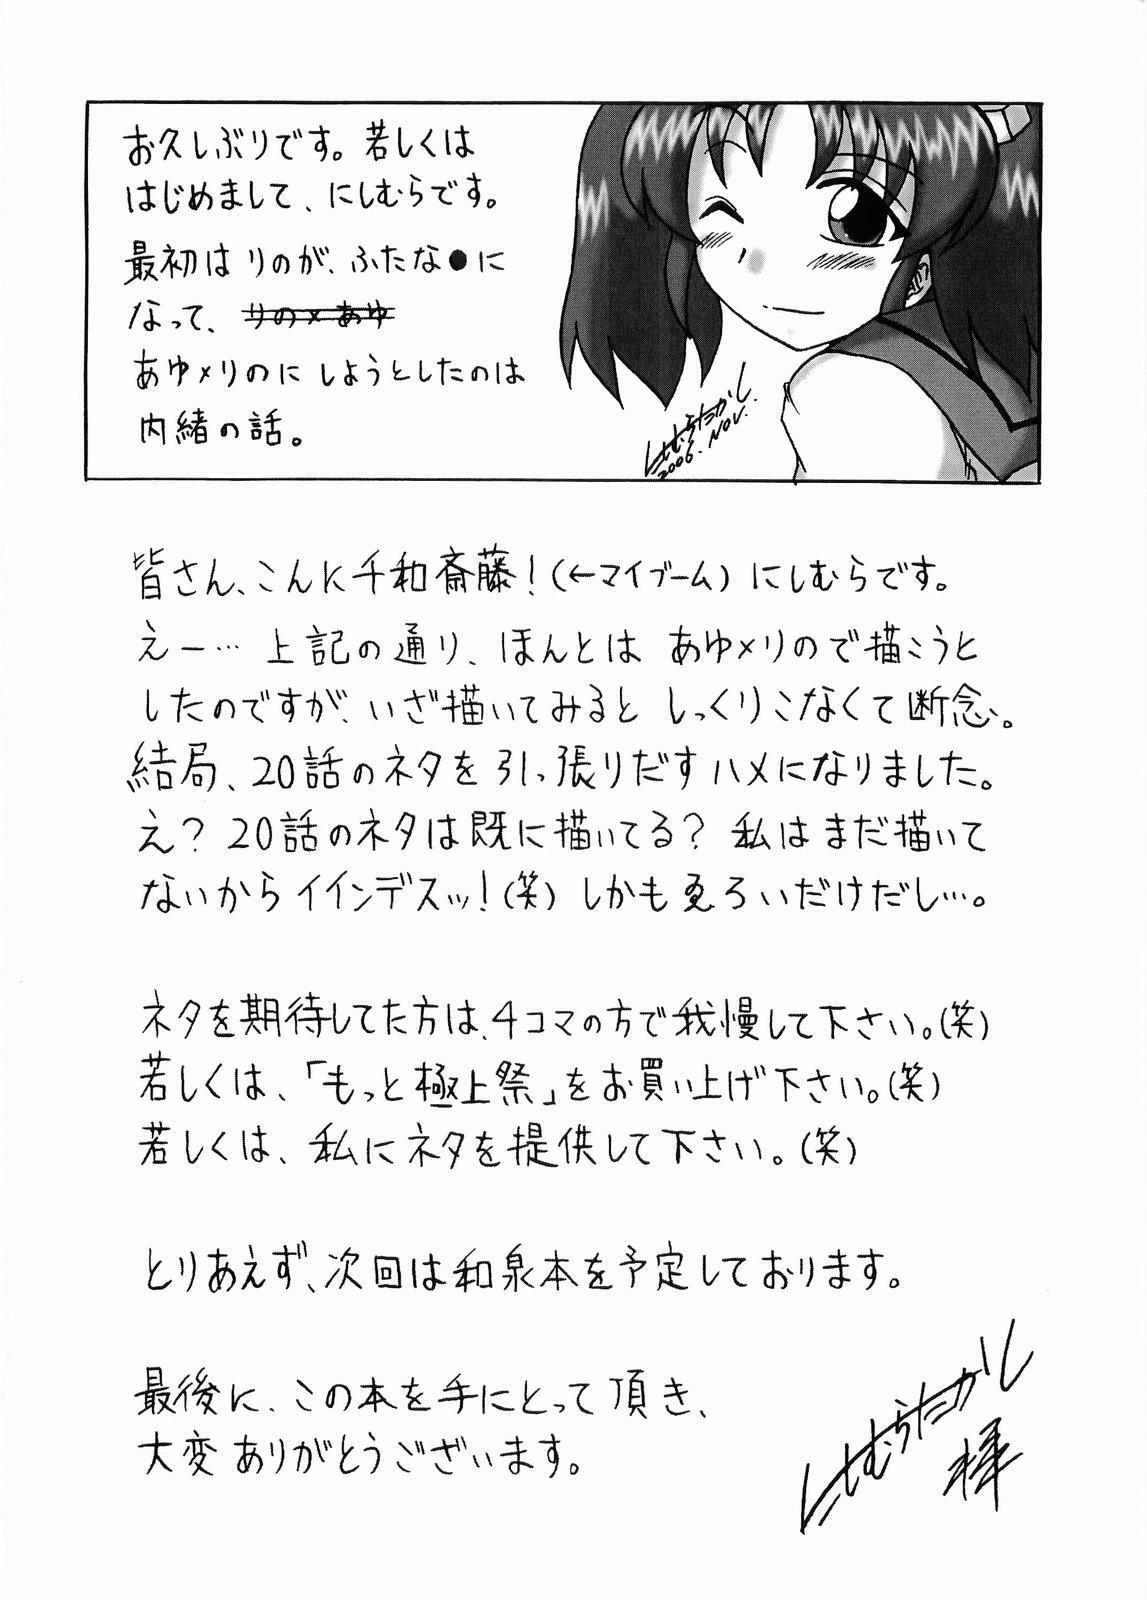 お久しぶりです。若しくは
はじめまして、にしむらです。
最初は りのが、ふたな●に
なって、りの×あゆ
あゆ×りのに しようとしたのは
内緒の話。
にしむらたかし
2006. NOV.
皆さん、こんに千和斎藤!(←マイブーム) にしむらです。
えー… 上記の通り、ほんとは あゆ×りので描こうと
したのですが、いざ描いてみると しっくりこなくて断念。
結局、20話のネタを引っ張りだすハメになりました。
え? 20話のネタは既に描いてる? 私はまだ描いて
ないからイインデスッ!(笑) しかも ゑろいだけだし…。
ネタを期待してた方は、4コマの方で我慢して下さい。(笑)
若しくは、「もっと極上祭」をお買い上げ下さい。(笑)
若しくは、私にネタを提供して下さい。(笑)
とりあえず、次回は和泉本を予定しております。
最後に、この本を手にとって頂き、
大変ありがとうございます。
にしむらたかし
拝